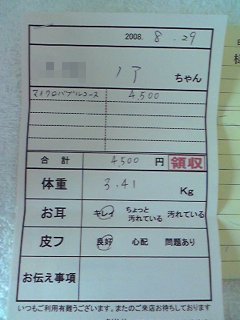 2008. 8. 29
ノア ちゃん
マイクロバブルコース 4500
合計 4500 円 領収
体重 3.41 Kg
お耳 キレイ ちょっと汚れている 汚れている
皮フ 良好 心配 問題あり
お伝え事項
いつもご利用有難うございます。またのご来店お待ちしております